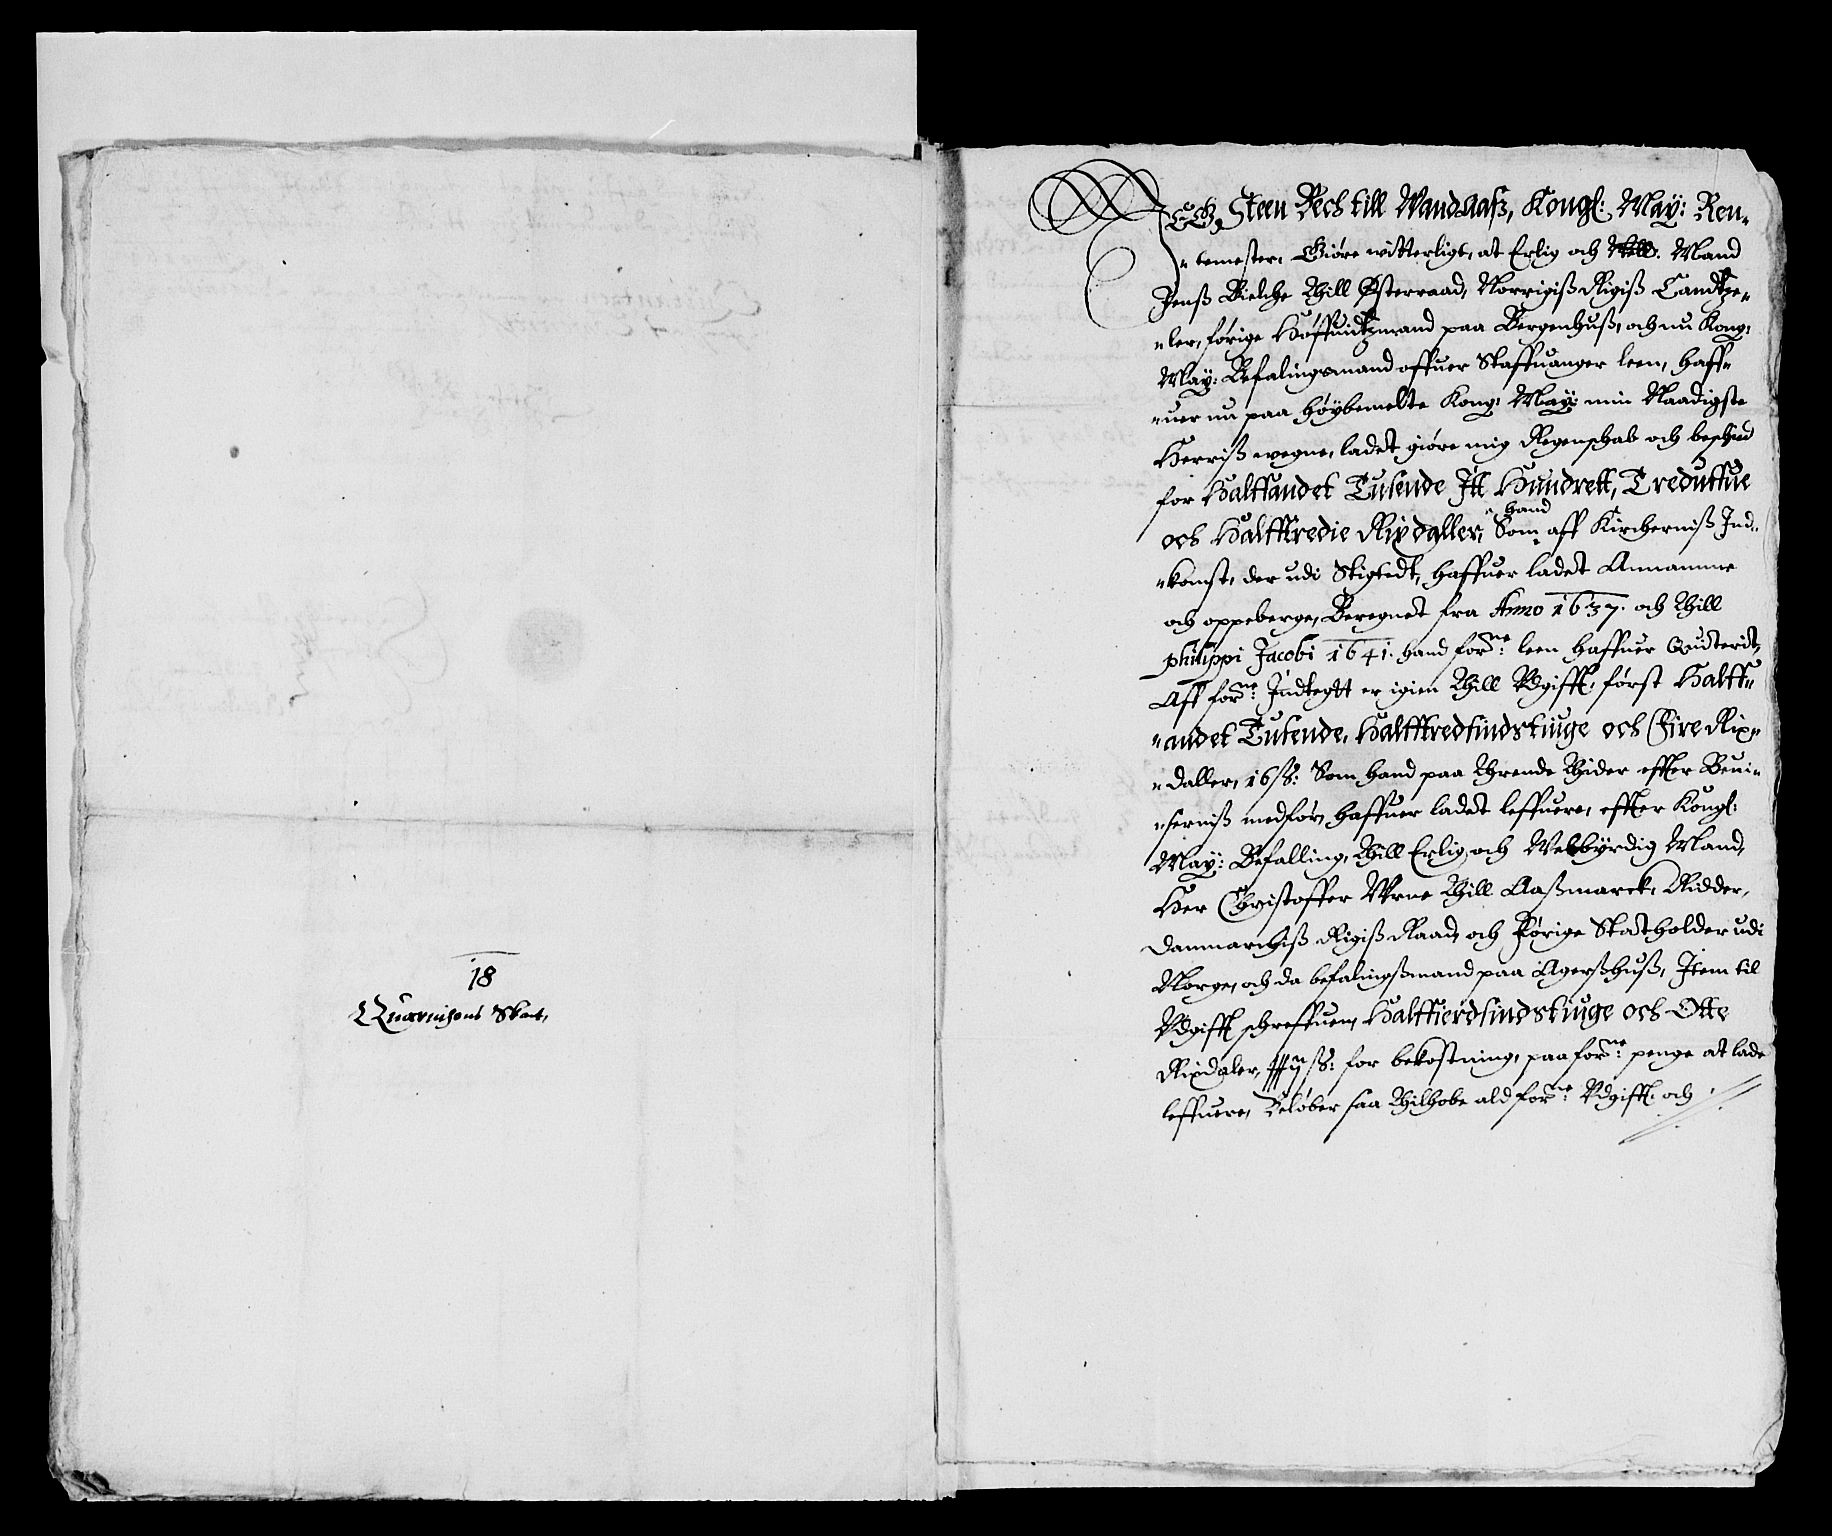 18
Quarnisons Skat,
JEG Steen Bech till Wandaaß, Kongl: May: Ren-
-temester, Giøre witterligt, at Erlig och Mand
Jenß Bielche till Østeraad, Norrigiß Rigiß Candtze-
-ler, førige Høffuidtzmand paa Bergenhuß, och nu Kong:
May: Befalingsmand offuer Staffuanger leen, haff-
-uer nu paa høybemelte Kong: May: min Naadigste
Herriß wegne, ladet giøre mig Regenschab och beschied
for Halffandet Tusende Itt Hundrett, Treduffue
och Halfftredie Rixdaller, Som hand aff Kircherniß Ind-
-komst, der udi Stigtedt, haffuer ladet Annamme
och oppeberge, Beregnet fra Anno 1637. och till
Philippi Jacobi 1641. hand forne: leen haffuer Quiterit,
Aff forne: Indtegtt er igien till Udgifft, først Halff-
-andet Tusende, Halfftredsindstiuge och Fire Rix-
-daller, 16 ß: Som hand paa thrende tider effter Beui-
-serniß medfør, haffuer ladet leffuere, effter Kongl:
May: Befalling, till Erlig och Welbyrdig Mand,
Her Christoffer Urne till Aaßmarck, Ridder,
Danmarchiß Rigiß Raad, och Førige Statholder udi
Norge, och da befalingßmand paa Agerßhuß, Item til
Udgifft schreffuen, Halffierdsindstiuge och Otte
Rixdaler, ß: for bekostning, paa forne: penge at lade
leffuere, Beløber saa tilhobe ald forne: Udgifft och